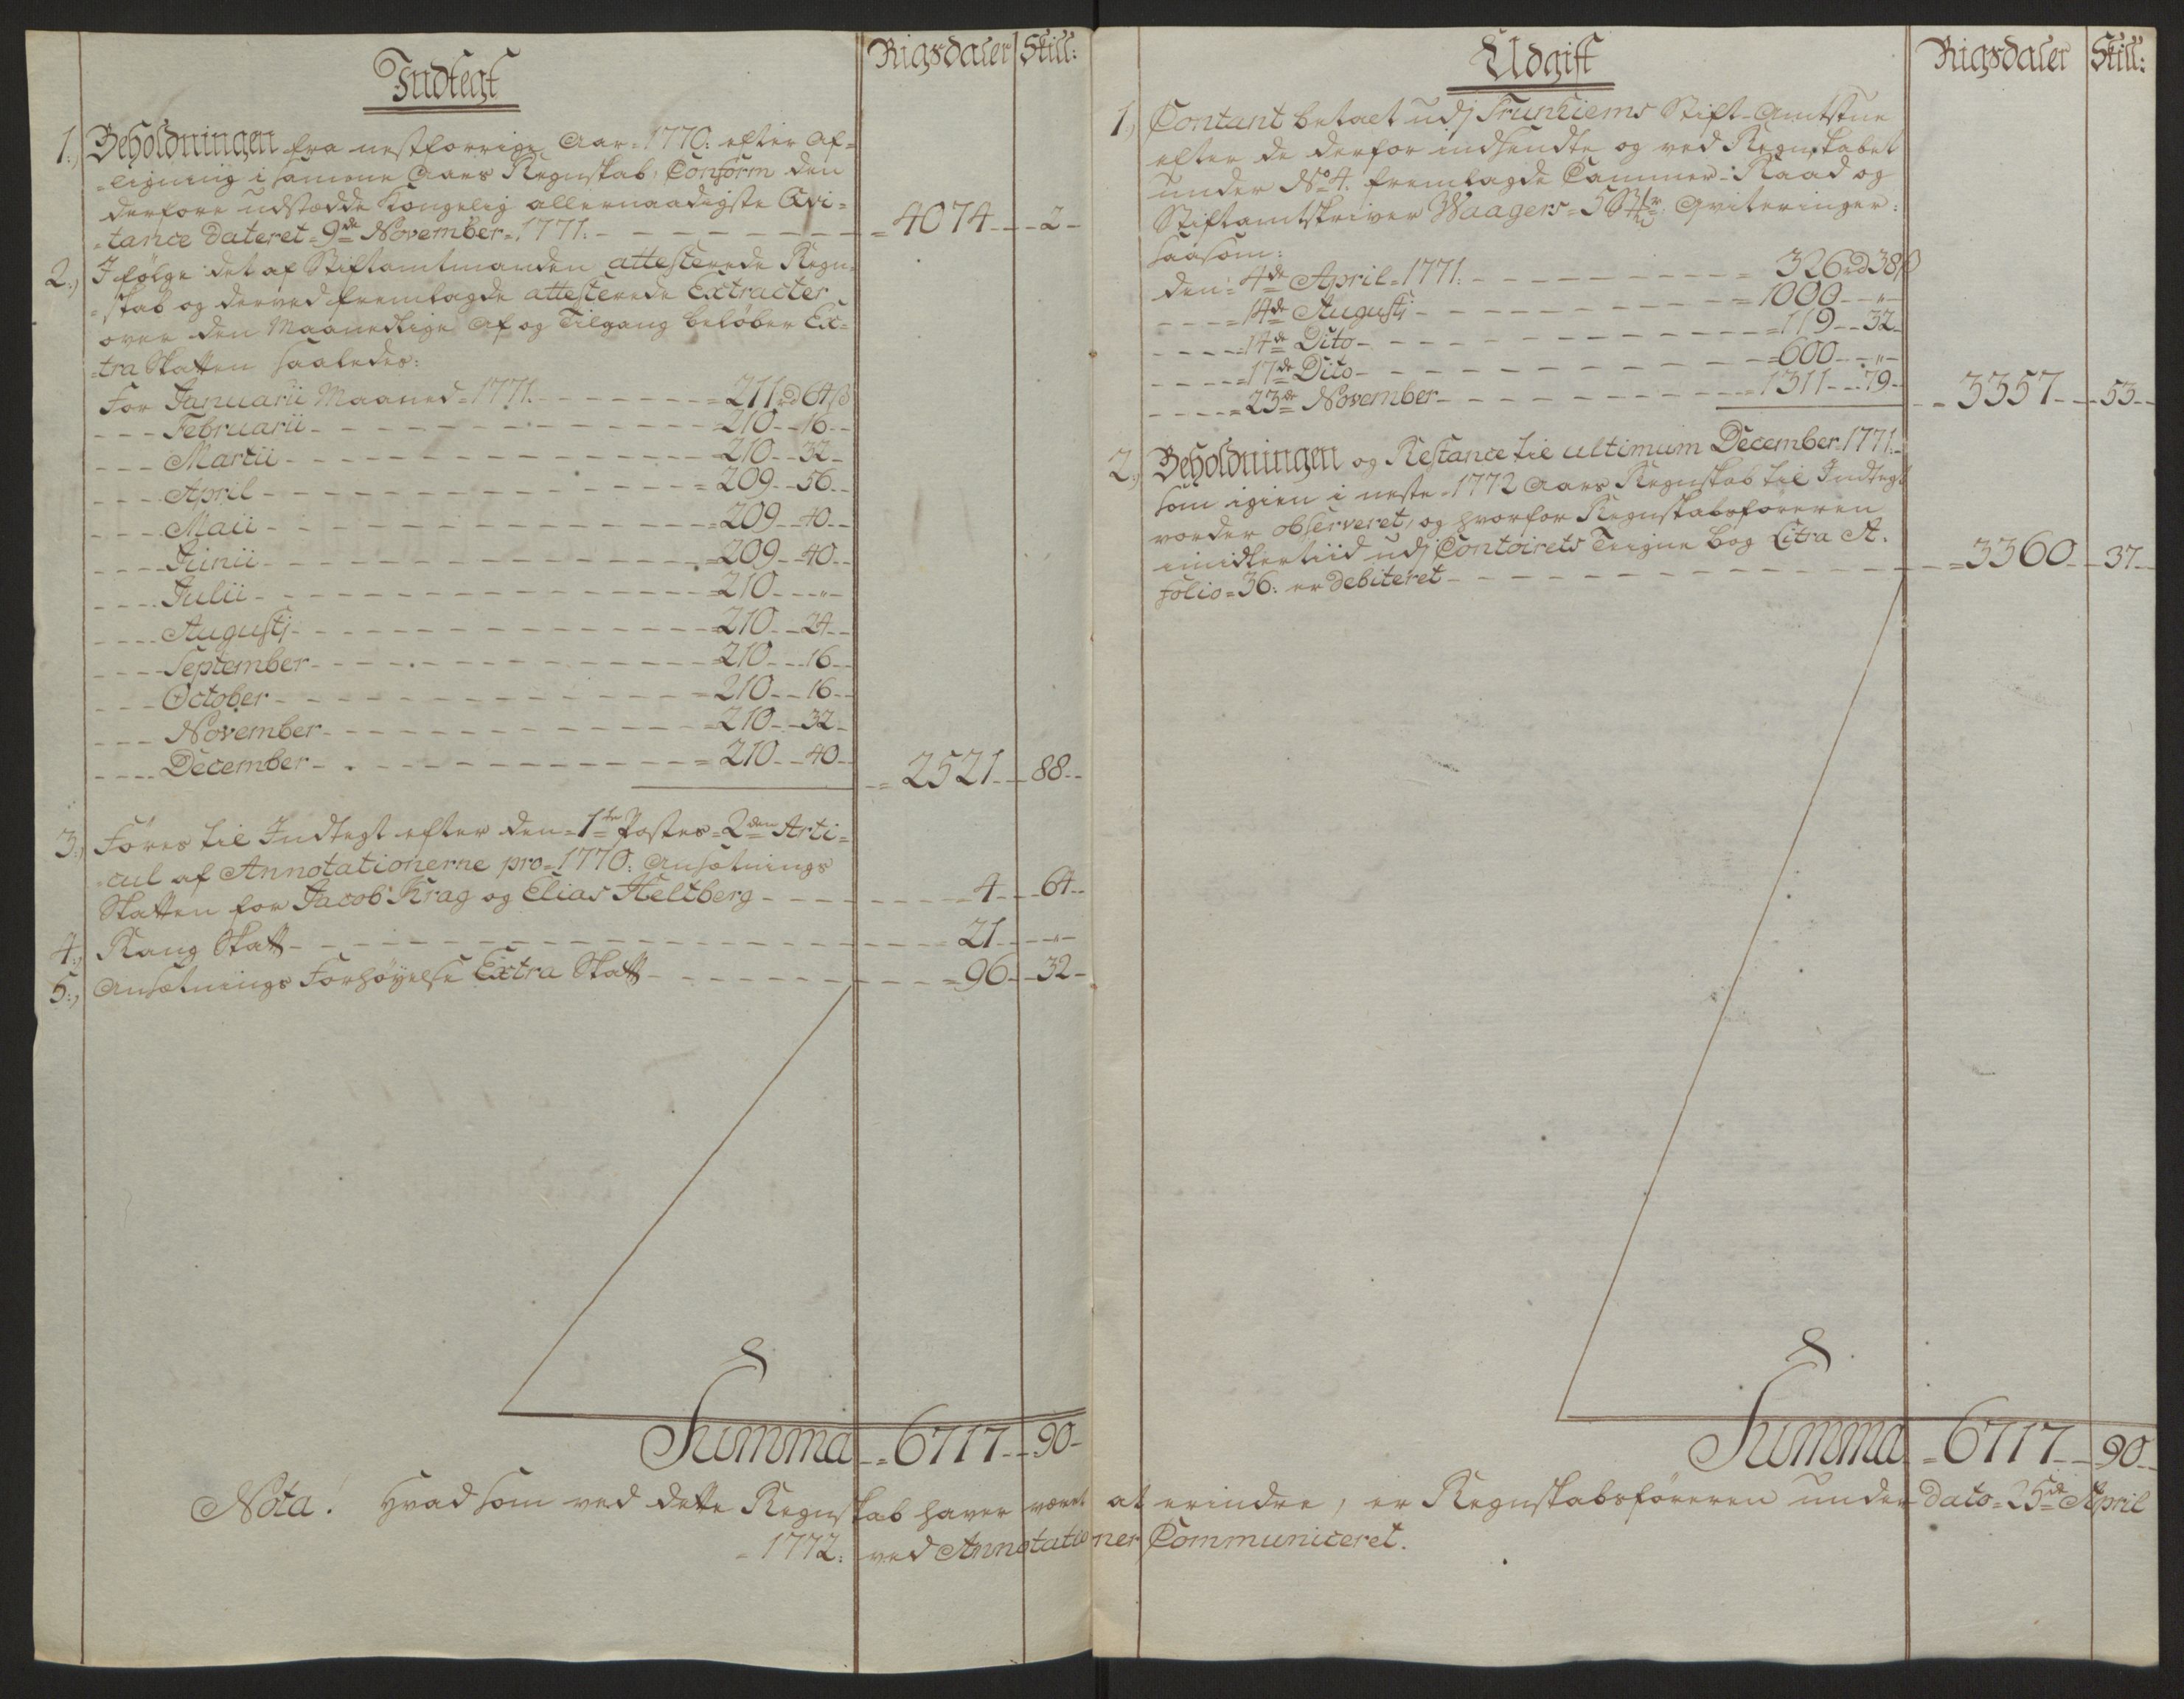 Indtegt
Rigsdaler Skill:
1.) Beholdningen fra nestforrige Aar=1770: efter Af=
=ligning i samme Aars Regnskab, Conform den
derfore udstædde Kongelig allernaadigste Qvi=
=tance dateret=9de November=1771. = 4074 - 2 -
2.) I følge det af Stiftamtmanden attesterede Regn=
=skab og derved fremlagde attesterede Extracter
over den Maanedlige Af og Tilgang beløber Ex=
=tra Skatten saaledes:
For Januarii Maaned=1771. = 211 rd 64 ß
- - - Februarii = 210 - 16 -
- - - Martii = 210 - 32 -
- - - April = 209 - 56 -
- - - Maii = 209 - 40 -
- - - Junii = 209 - 40 -
- - - Julii = 210 - " -
- - - Augustj = 210 - 24 -
- - - September = 210 - 16 -
- - - October = 210 - 16 -
- - - November = 210 - 32 -
- - - December = 210 - 40 -
= 2521 - 88 -
3.) Føres til Indtegt efter den=1te Postes=2den Arti=
=cul af Annotationerne pro=1770: Ansætnings
Skatten for Jacob Krag og Elias Heltberg = 4 - 64 -
4.) Rang Skatt = 21 - " -
5.) Ansætnings Forhøyelse Extra Skatt = 96 - 32 -
Summa = 6717 - 90 -
Udgift
Rigsdaler Skill:
1.) Contant betalt udj Trunhiems Stift-Amtstue
efter de derfor indsendte og ved Regnskabet
under No 4. fremlagde Cammer-Raad og
Stiftamtskriver Waagers=5 Qviteringer:
saasom:
den=4de April=1771. = 326 rd 38 ß
- - - =14de Augustj = 1000 - " -
- - - =14de Dito = 119 - 32 -
- - - =17de Dito = 600 - " -
- - - =23de November = 1311 - 79 -
= 3357 - 53 -
2.) Beholdningen og Restance til ultimum December=1771.
som igien i neste=1772 Aars Regnskab til Indtegt
vorder observeret, og hvorfor Regnskabsføreren
imidlertiid udj Contoirets Teigne bog Litra A.
Folio=36: er debiteret = 3360 - 37 -
Summa = 6717 - 90 -
Nota! Hvad som ved dette Regnskab haver været at erindre, er Regnskabsføreren under dato=25de April
=1772: ved Annotationer Communiceret.